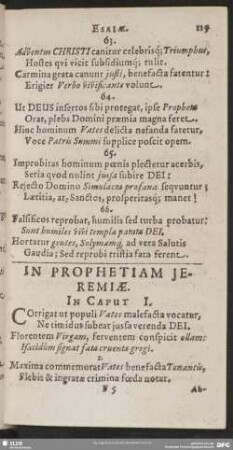 ESAIÆ. 119
63.
Adventus CHRISTI canitur celebrisq; Triumphus,
Hostes qvi vicit subsidiumq; tulit.
Carmina grata canunt justi, benefacta fatentur:
Erigier Verbo vivificante volunt.
64.
Ut DEUS infertos sibi protegat, ipse Propheta
Orat, plebs Domini præmia magna feret.
Hinc hominum Vates delicta nefanda fatetur,
Voce Patris Summi supplice poscit opem.
65.
Improbitas hominum pœnis plectetur acerbis,
Seria qvod nolint jussa subire DEI:
Rejecto Domino Simulacra profana seqvuntur;
Lætitia, at, Sanctos, prosperitasq; manet!
66.
Falsificos reprobat, humilis sed turba probatur:
Sunt humiles sibi templa parata DEI.
Hortatur gentes, Solymamq; ad vera Salutis
Gaudia; Sed reprobi tristia fata ferent.
IN PROPHETIAM JE-
REMIÆ.
IN CAPUT I.
Corrigat ut populi Vates malefacta vocatur,
Ne timidus subeat jussa verenda DEI.
Florentem Virgam, ferventem conspicit ollam:
signat fata cruenta gregi.
2.
Maxima commemorat Vates benefacta Tonantis,
Plebis & ingratæ crimina fœda notat.
Ab-